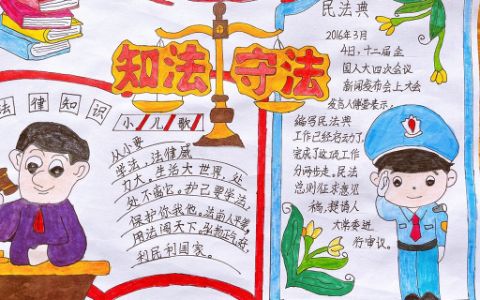 知法守法
法律知识
小儿歌
从小要
学法,法律威
力大。生活大世界,处
处不离它。护己要学法,
保护你我他。法前人平等,
用法闯天下。弘扬正气在,
利民利国家。
民法典
2016年3月
4日,十二届全
国人大四次会议
新闻发布会上大会
发言人傅莹表示:
编写民法典
工作已经启动了,
完成了这项工作
分两步走。民法
总则征求意见
稿,提请人
大常委进
行审议。